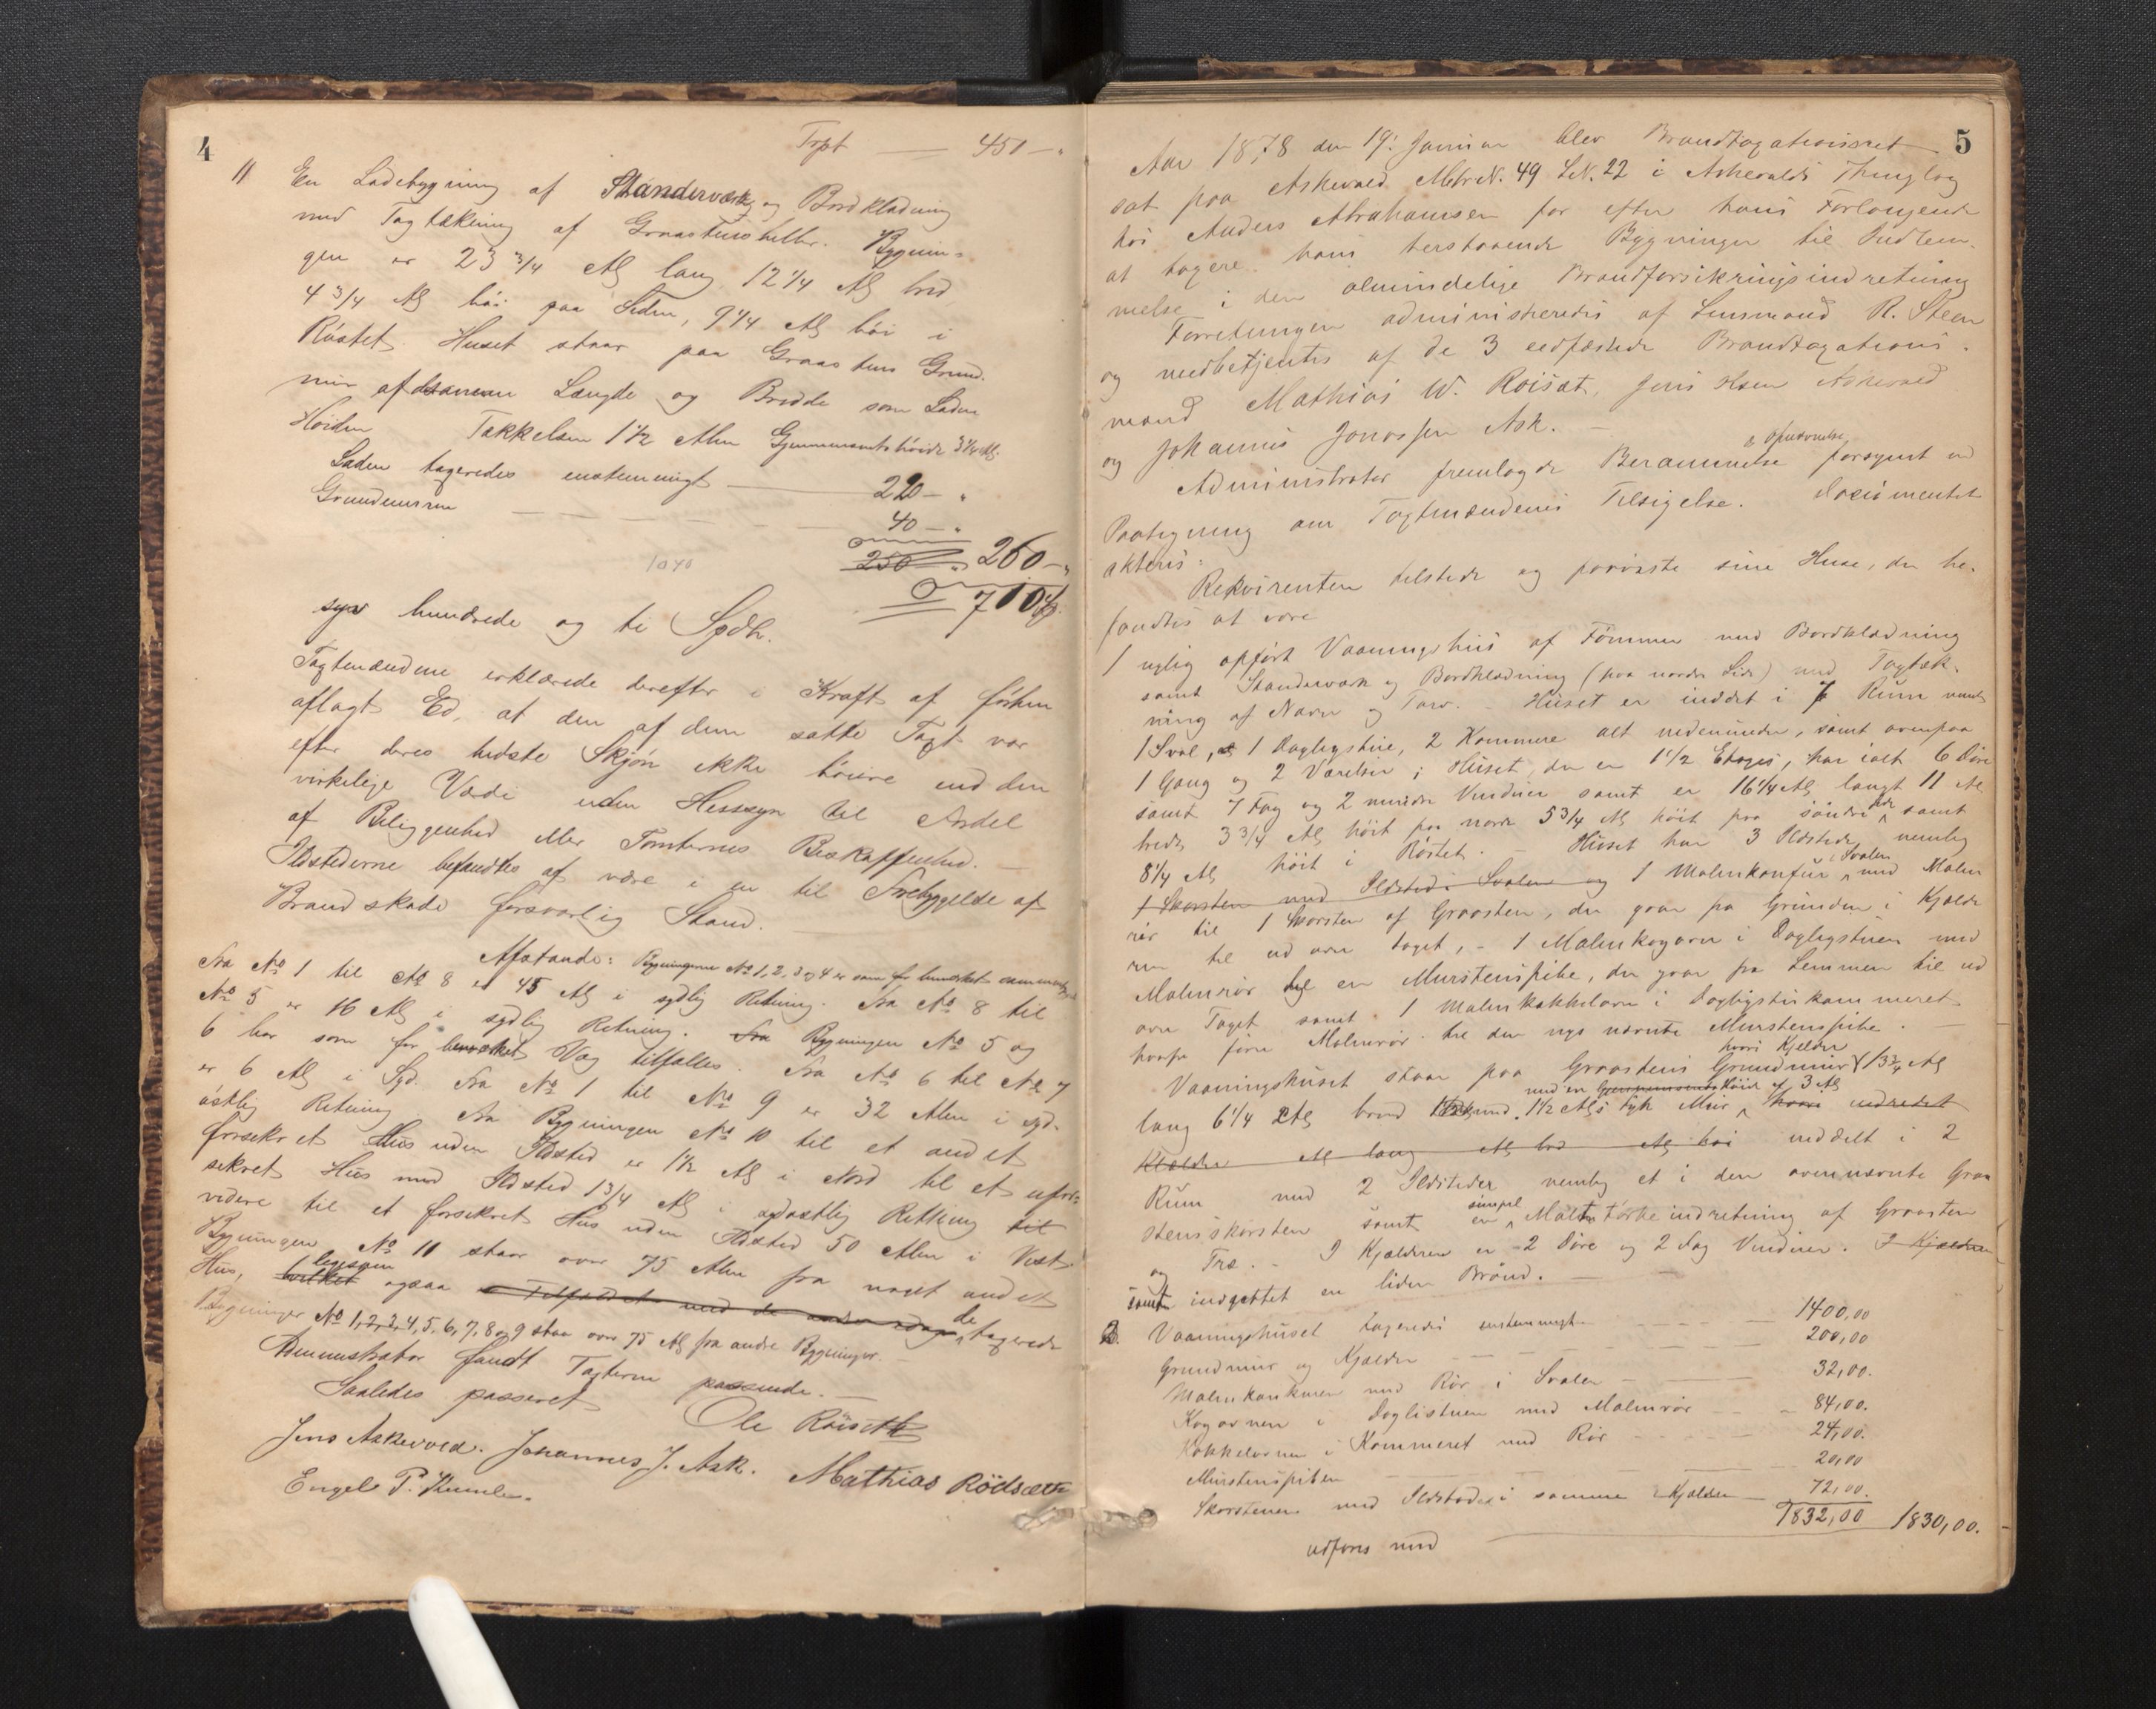 4
Trpt — 450 – "
11 En Ladebygning af Standerværk og Bordklædning
med Tagtækning af Graastensheller. Bygnin-
gen er 23 3/4 Al lang 12 1/4 Al bred
4 3/4 Al höi paa Siden, 9 1/4 Al höi i
Röstet. Huset staar paa Graastens Grund-
mur af samme Længde og Bredde som Laden
Höiden Tækkelsen 1 1/2 Alen Gjennemsnitshöide 3 1/4 Al.
Laden taxeredes enstemmigt — 220 – "
Grundmuren — 40 – "
1040
250 " 260 – "
710
syv hundrede og ti Spdlr.
Taxtmændene erklærede derefter i Kraft af förhen
aflagt Ed, at den af dem satte Taxt var
efter deres bedste Skjön ikke höiere end den
virkelige Værdi uden Hensyn til Andel
af Beliggenhed eller Tomternes Beskaffenhed. —
Ildstederne befandtes at være i en til Forebyggelse af
Brandskade forsvarlig Stand. —
Afstande: Bygningerne No 1, 2, 3 og 4 er som før bemærket
Fra No 1 til No 8 er 45 Al i sydlig Retning. Fra No 8 til
No 5 er 16 Al i sydlig Retning. Fra Bygningen No 5 og
6 har som før bemærket Væg tilfælles. Fra No 6 til No 7
er 6 Al i Syd. Fra No 1 til No 9 er 32 Alen i syd-
östlig Retning Fra Bygningen No 10 til et andet
forsekret Hus uden Ildsted er 1 1/2 Al i Nord til et ufor-
sekret Hus med Ildsted 1 3/4 Al i sydostlig Retning til
videre til et forsekret Hus uden Ildsted 50 Alen i Vest.
Bygningen No 11 staar over 75 Alen fra noget andet
Hus, hvilket ligesom ogsaa Tilfældet med de andre de taxerede
Bygninger No 1, 2, 3, 4, 5, 6, 7, 8 og 9 staa over 75 Al fra andre Bygninger. —
Administrator fandt Taxterne passende. —
Saaledes passeret
Ole Röiseth
Jens Askevold. Johannes J. Ask. Mathias Rödsæth
Engel P.
5
Aar 1878 den 19. Januar blev Brandtaxationsret
sat paa Askevold Matr N. 49 LN. 22 i Askevolds Thinglag
hos Anders Abrahamsen for efter hans Forlangende
at taxere hans herstaaende Bygninger til Indlem-
melse i den almindelige Brandforsikringsindretning
Forretningen administreredes af Lensmand R. Steen
og medbetjentes af de 3 eedfæstede Brandtaxations-
mænd Mathias W. Roisæt, Jens Askevold
og Johannes Jonassen Ask. —
Administrator fremlagde Berammelse & Opnævnelse forsynet med
Paategning om Taxtmændenes Tilsigelse. Documentet
akteris:
Rekvirenten tilstede og paaviste sine Huse, der be-
fandtes at være
1 nylig opført Vaaningshus af Tömmer med Bordklædning
samt Standerværk og Bordklædning (paa nordre Side) med Tagtæk-
ning af Næver og Torv. – Huset er inddelt i 7 Rum nemlig
1 Sval, 1 Dagligstue, 2 Kammere alt nedenunder, samt ovenpaa
1 Gang og 2 Værelser i Huset, der er 1 1/2 Etages, har ialt 6 Döre
samt 7 Fag og 2 mindre Vinduer samt er 16 1/4 Al langt 11 Al
bredt, 3 3/4 Al höit paa nordre 5 3/4 Al höit paa söndre Side samt
8 1/4 Al höit i Röstet. – Huset har 3 Ildsteder, nemlig
1 Skorsten med Ildsted i Svalen og 1 Malmkomfur i Svalen med Malm
rör til 1 Skorsten af Graasten, der gaar fra Grunden i Kjælde
ren til ud over taget, – 1 Malmkogovn i Dagligstuen med
Malmrör til en Murstenspibe, der gaar fra Lemmen til ud
over Taget samt 1 Malmkakkelovn i Dagligstuekammeret
hvorfra fører Malmrör til den nys nævnte Murstenspibe. —
Vaaningshuset staar paa Graastens Grundmur hvori Kjelder 13 3/4 Al
lang 6 1/4 Al bred med 1 1/2 Als tyk Mur med en Gjennemsnitshöide af 3 Al hvori indredet
Kjælder Al lang Al bred Al höi inddelt i 2
Rum med 2 Ildsteder nemlig et i den ovennævnte Graa
stensskorsten samt en simpel Malttörkeindretning af Graasten
og Træ. – I Kjælderen er 2 Döre og 2 Fag Vinduer. I Kjælderen
samt indsættet en liden Brönd. —
Vaaningshuset taxeredes enstemmigt — 1400,00
Grundmur og Kjælder — 200,00
Malmkomfuren med Rör i Svalen — 32,00.
Kogovnen i Daglistuen med Malmrör — 84,00.
Kakkelovnen i Kammeret med Rör — 24,00.
Murstenspiben — 20,00
Skorstenen med Ildstæder i samme i Kjælder — 72,00.
1832,00 1830,00.
udføres med —